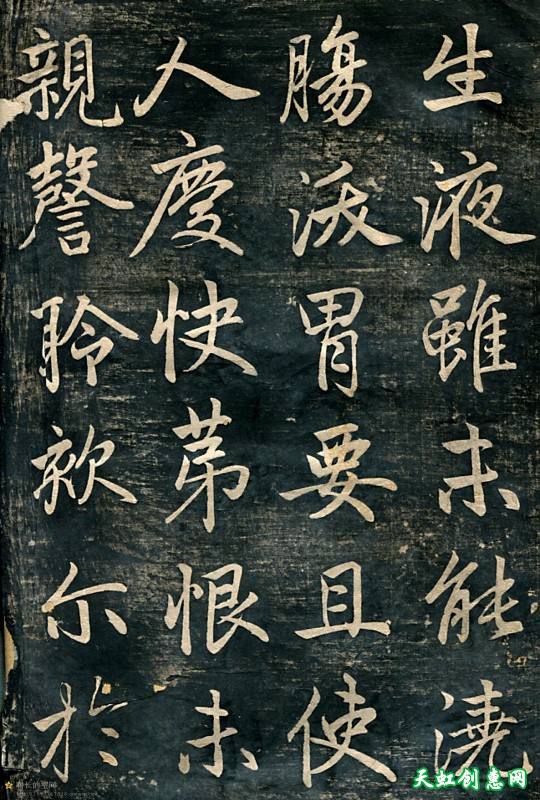 生液雖未能澆
腸沃胃要且使
人慶快苐恨未
親謦聆欬尒於
天虹创惠网